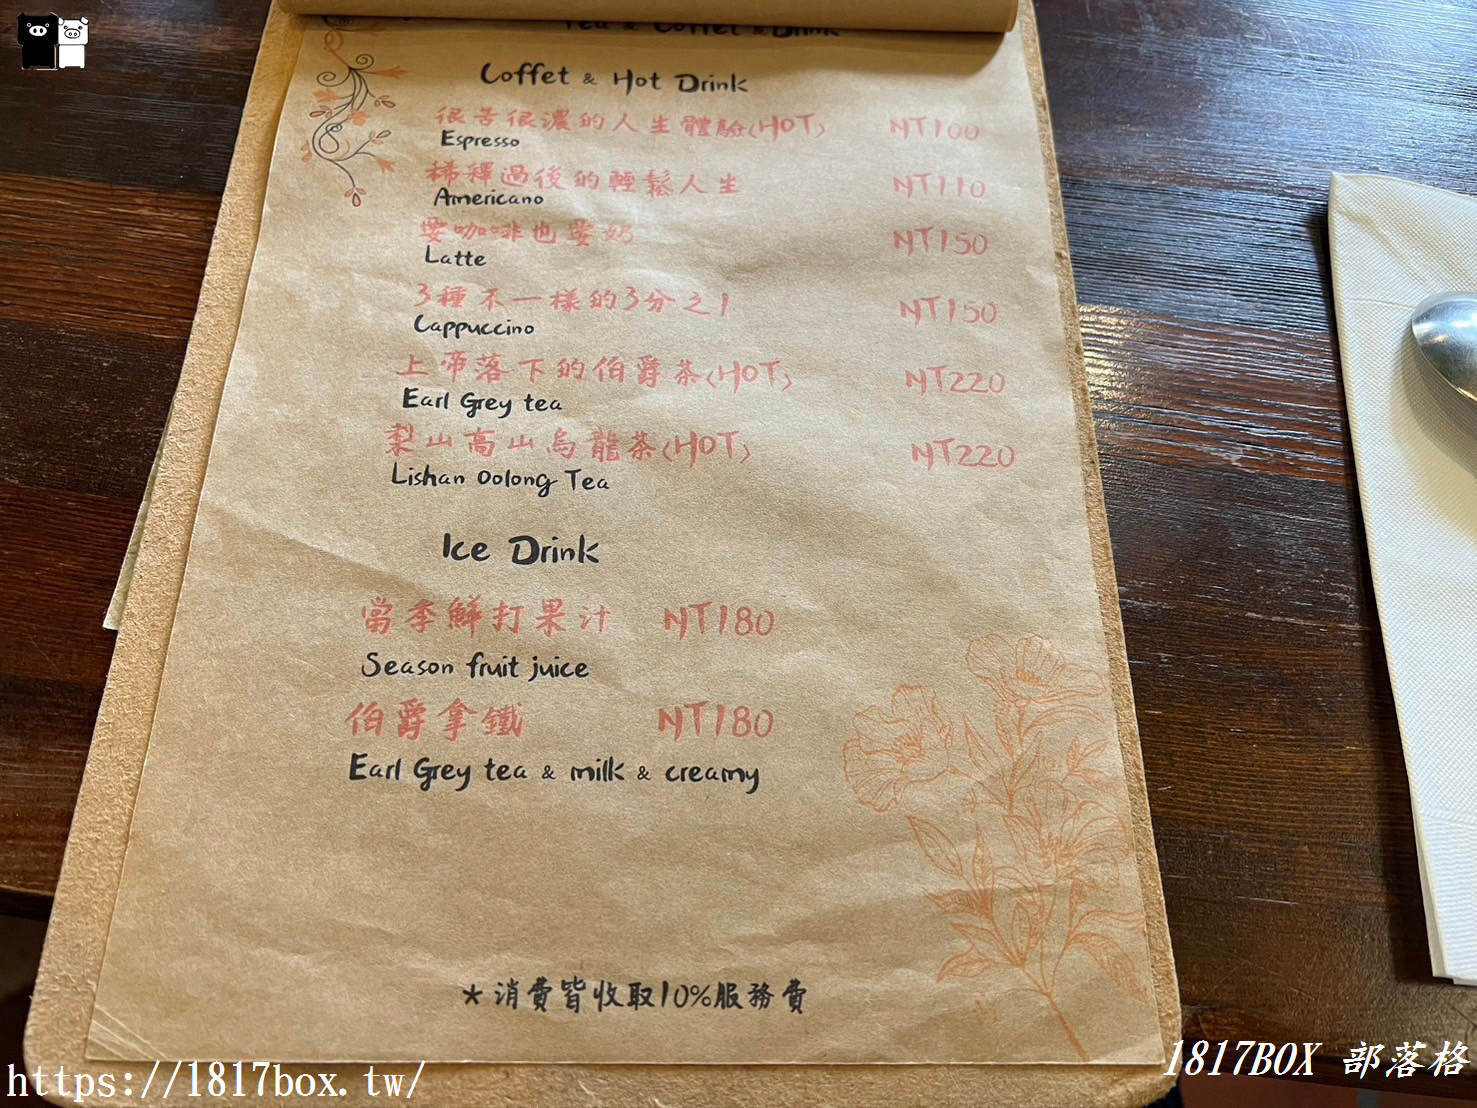 Tea & Coffet & Drink
Coffet & Hot Drink
很苦很濃的人生體驗(HOT) NT100
Espresso
稀釋過後的輕鬆人生 NT110
Americano
要咖啡也要奶 NT150
Latte
3種不一樣的3分之1 NT150
Cappuccino
上帝落下的伯爵茶(HOT) NT220
Earl Grey tea
梨山高山烏龍茶(HOT) NT220
Lishan Oolong Tea
Ice Drink
當季鮮打果汁 NT180
Season fruit juice
伯爵拿鐵 NT180
Earl Grey tea & milk & creamy
*消費皆收取10%服務費
https://1817box.tw/
1817BOX 部落格